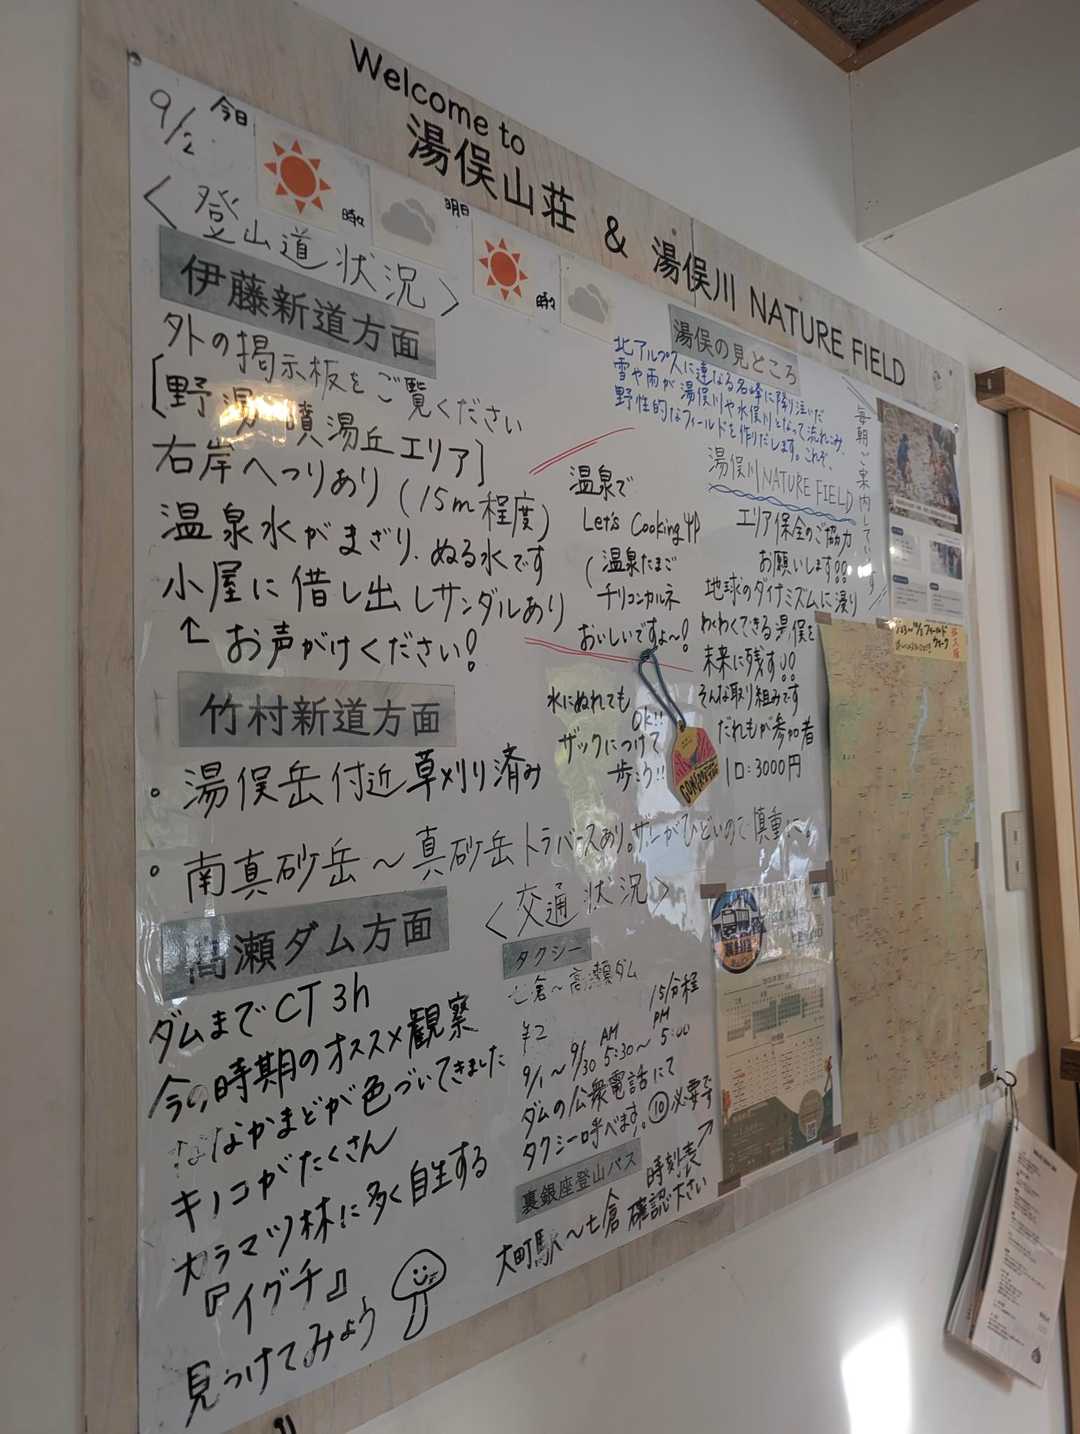 Welcome to
湯俣山荘 & 湯俣川 NATURE FIELD
9/2 今日 時々 明日 時々
〈登山道状況〉
伊藤新道方面
外の掲示板をご覧ください
[野湯 噴湯丘エリア]
右岸へつりあり(15m程度)
温泉水がまざり、ぬる水です
小屋に借し出しサンダルあり
↑お声がけください!
竹村新道方面
・湯俣岳付近草刈り済み
・南真砂岳~真砂岳トラバースあり。ザレがひどいので慎重に。
高瀬ダム方面
ダムまでCT3h
今の時期のオススメ観察
ななかまどが色づいてきました
キノコがたくさん
カラマツ林に多く自生する
『イグチ』
見つけてみよう
湯俣の見どころ
北アルプスに連なる名峰に降り注いだ
雪や雨が湯俣川や水俣川となって流れこみ、
野性的なフィールドを作りだします。これぞ、
湯俣川NATURE FIELD
毎朝ご案内しています
温泉で
Let's Cooking
(温泉たまご
チリコンカルネ
おいしいですよ~!
エリア保全のご協力
お願いします!!
地球のダイナミズムに浸り
わくわくできる湯俣を
未来に残す!!
そんな取り組みです
だれもが参加者
1口:3000円
水にぬれても
OK!!
ザックにつけて
歩こう!!
〈交通状況〉
タクシー
七倉~高瀬ダム
15分程
9/1~9/30 AM 5:30~ PM 5:00
ダムの公衆電話にて
タクシー呼べます。⑩必要です
裏銀座登山バス
大町駅~七倉
時刻表
確認下さい